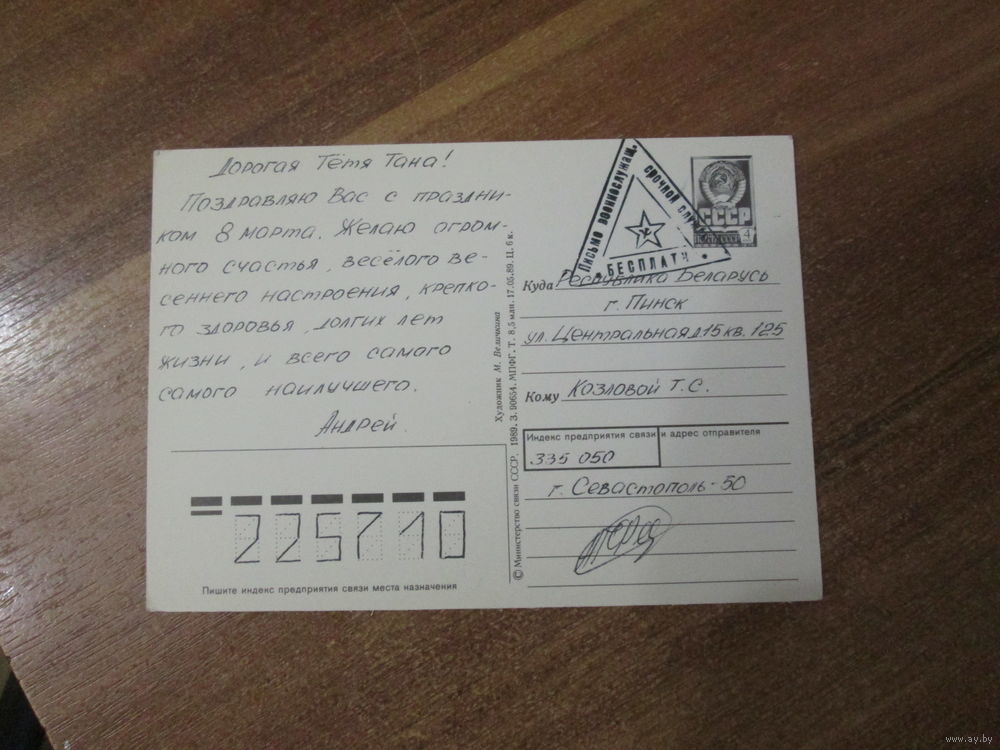 Дорогая Тётя Тана!
Поздравляю Вас с праздни-
ком 8 марта. Желаю огром-
ного счастья, весёлого ве-
сеннего настроения, крепко-
го здоровья, долгих лет
жизни, и всего самого
самого наилучшего.
Андрей.
225710
Пишите индекс предприятия связи места назначения
Художник М. Величкина
© Министерство связи СССР. 1989. З. 90654. МПФГ. Т. 8,5 млн. 17.05.89. Ц. 6 к.
Письмо военнослужащ. срочной служ
БЕСПЛАТН
СССР
4
Куда Республика Беларусь
г. Пинск
ул. Центральная д15 кв. 125
Кому Козловой Т.С.
Индекс предприятия связи и адрес отправителя
335 050
г. Севастополь-50
www.ay.by